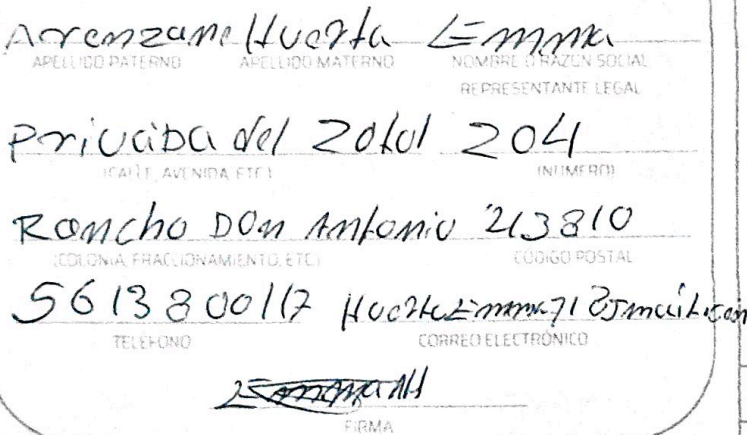 Arrenzane Huerta Emma
APELLIDO PATERNO APELLIDO MATERNO NOMBRE O RAZON SOCIAL
REPRESENTANTE LEGAL
Privada del Zotol 204
(CALLE, AVENIDA, ETC.) (NUMERO)
Rancho Don Antonio 43810
(COLONIA, FRACCIONAMIENTO, ETC.) CODIGO POSTAL
5613800117
TELEFONO CORREO ELECTRÓNICO
FIRMA